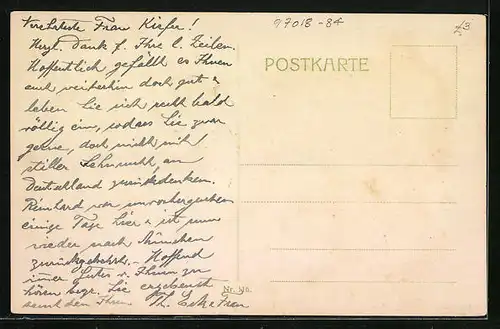 Verehrteste Frau Kiefer!
Herzl. Dank f. Ihre l. Zeilen.
Hoffentlich gefällt es Ihnen
auch weiterhin doch gut &
leben Sie sich recht bald
völlig ein, sodass Sie zwar
gerne, doch nicht mit
stiller Sehnsucht an
Deutschland zurückdenken.
Reinhard war unvorhergesehen
einige Tage hier & ist nun
wieder nach München
zurückgekehrt. - Hoffend
immer Gutes v. Ihnen zu
hören Sie ergebenst
Ihre Th.
97018-84
POSTKARTE